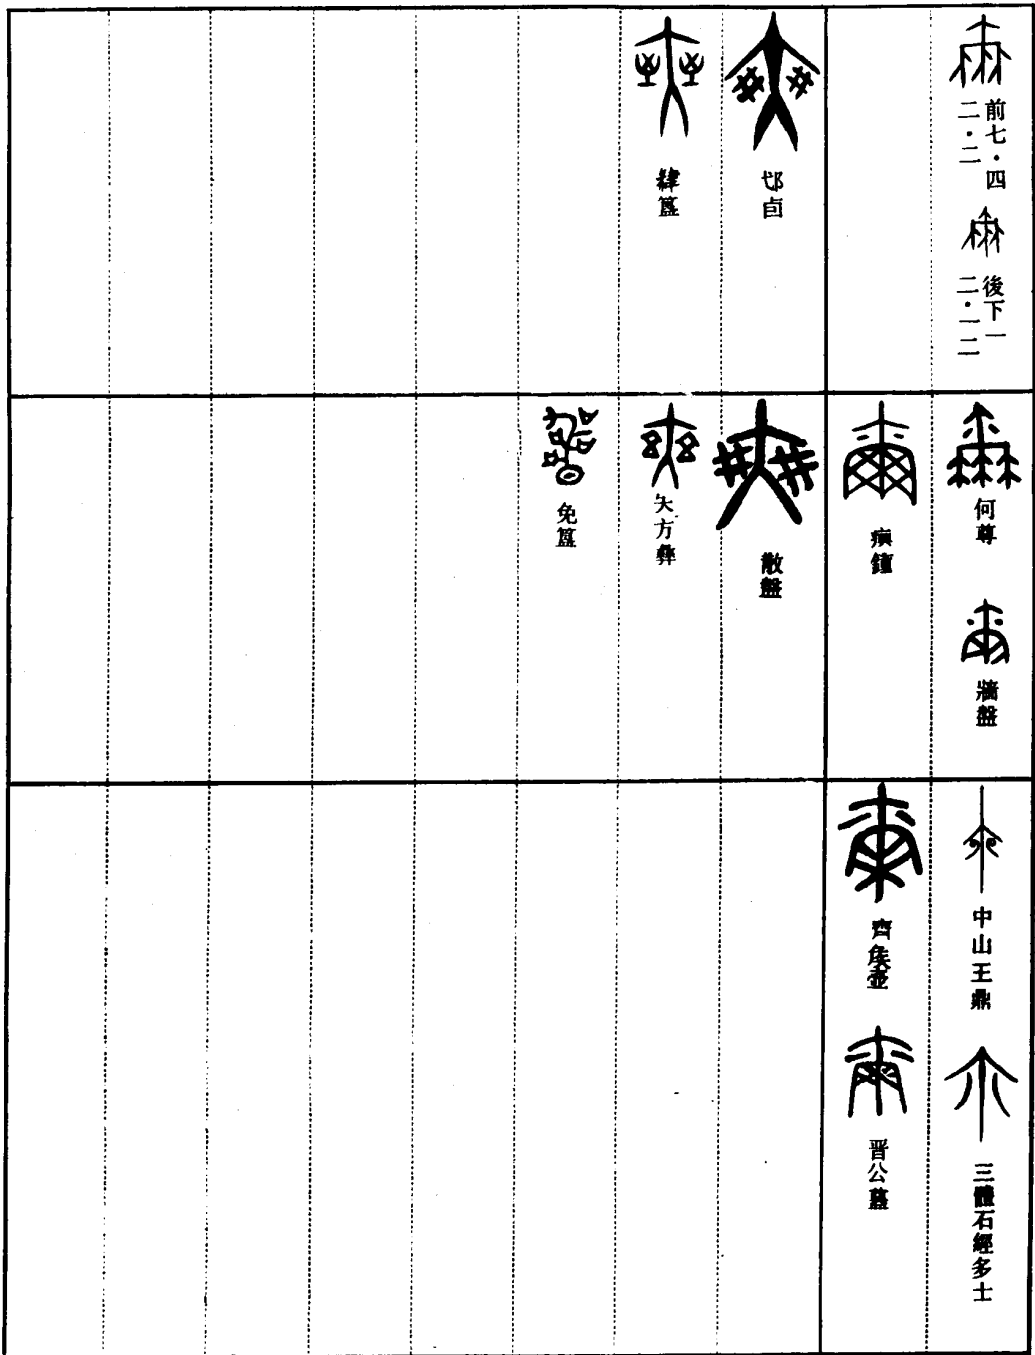 前七·四
二·二
後下一
二·一二
卣
簋
何尊
牆盤
鐘
散盤
夨方彝
免簋
中山王鼎
三體石經多士
齊侯壺
晋公